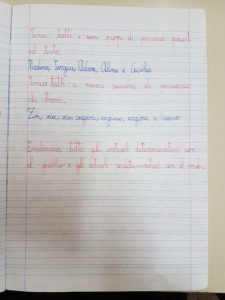 Scrivi tutti i nomi propri di persona presenti
nel testo.
Adam, Alina e Cecilia
Scrivi tutti i nomi comuni di persona
che trovi.
Zii, zia, zio, cugini, cugino, cugina e cuoco
Evidenzia tutti gli articoli determinativi con
il giallo e gli articoli indeterminativi con il